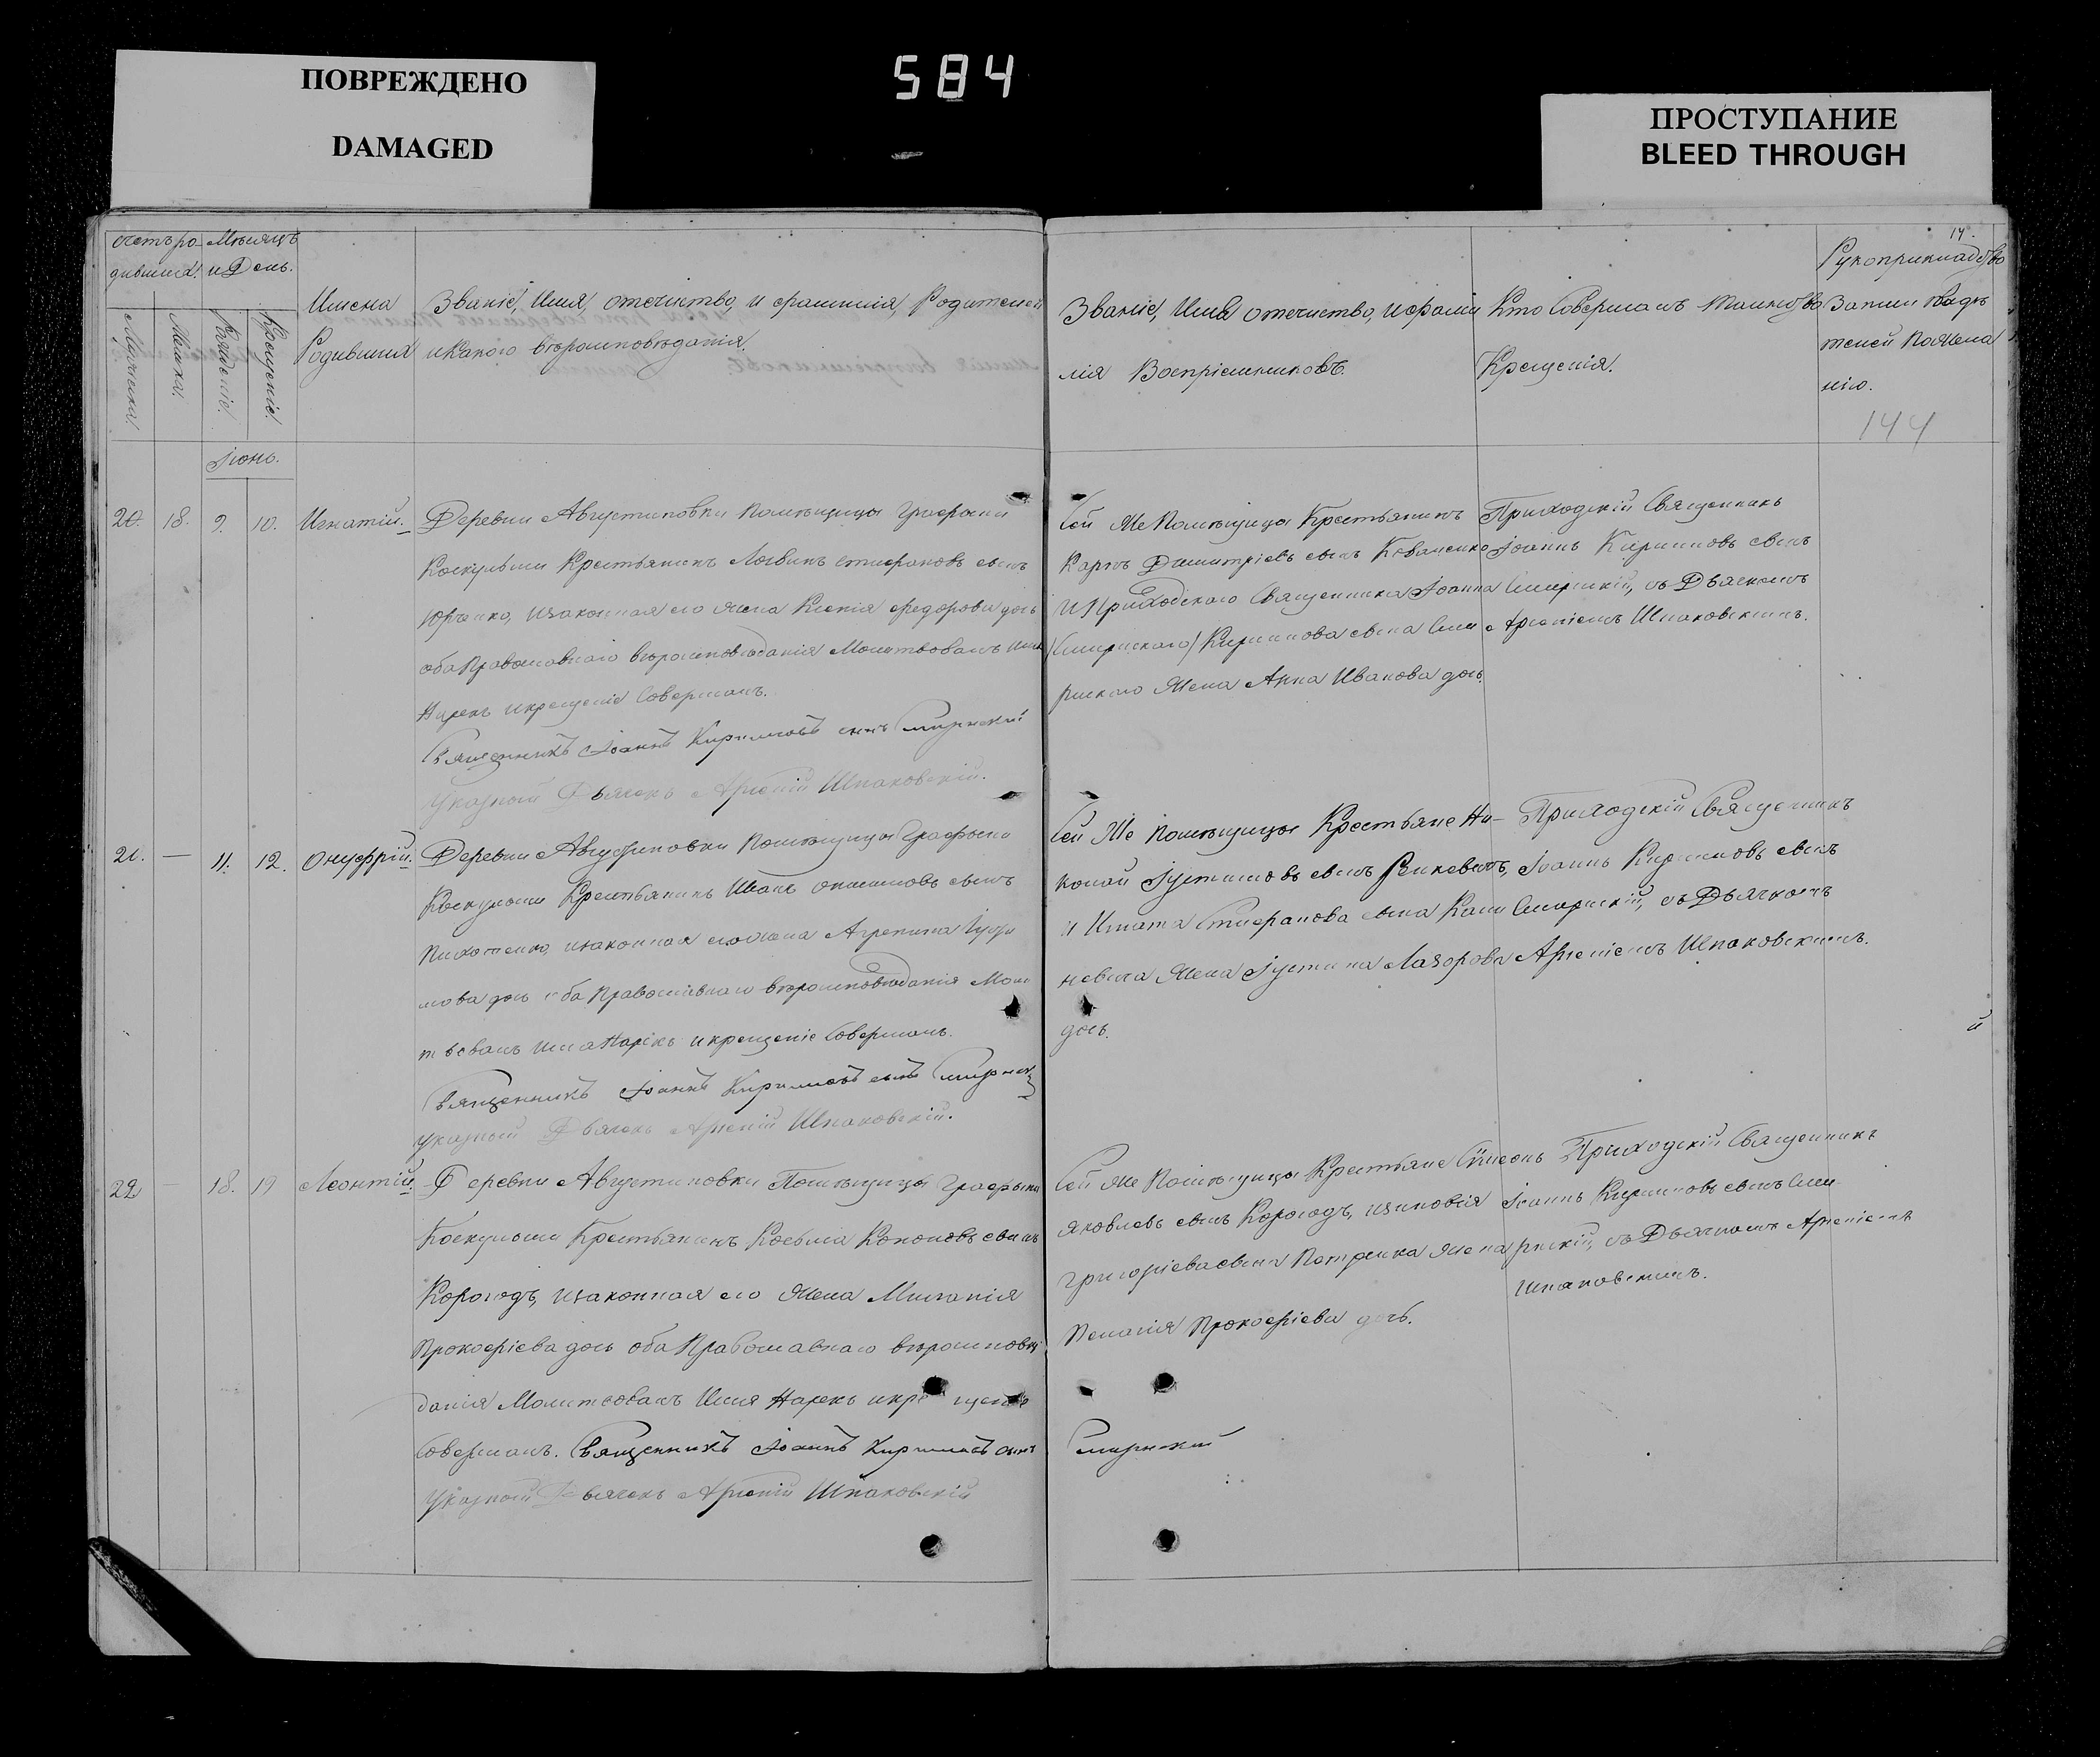 ПОВРЕЖДЕНО
DAMAGED
584
ПРОСТУПАНИЕ
BLEED THROUGH
14.
144
Счетъ ро-
дившихся.
Мѣсяцъ
и День.
Мужеска.
Женска.
Рожденіе.
Крещеніе.
Имена
Родившихся
Званіе, Имя, отечиство, и фамилія, Родителей
и Какого вѣроисповѣданія.
Званіе, Имя отечиство, и фами
лія Воспріемниковъ.
Кто Совершалъ таинство
Крещенія.
Рукоприкладство
Записи
телей по жела
нію.
Іюнь.
20. 18. 9. 10. Игнатій.
Деревни Августиновки помѣщицы Графини
Коскульши Крестьянинъ Логвинъ Стефановъ сынъ
Юрченко, и законная его жена Ксенія Федорова дочь
оба Православнаго вѣроисповѣданія Молитвовалъ имя
Нарекъ и крещеніе Совершалъ.
Священникъ Іоаннъ Кирилловъ сынъ Смирнскій
Указный Дьячекъ Арсеній Шпаковскій.
Сей же помѣщицы Крестьянинъ
Карпъ Димитріевъ сынъ Коваленко
и Приходскаго Священника Іоанна
(Смирнскаго) Кириллова сына Сми
рнскаго жена Анна Иванова дочь.
Приходскій Священникъ
Іоаннъ Кирилловъ сынъ
Смирнскій, съ Дьячкомъ
Арсеніемъ Шпаковскимъ.
21. — 11. 12. Онуфрій.
Деревни Августиновки помѣщицы Графини
Коскульши Крестьянинъ Иванъ сынъ
и законная его жена Агрепина
мова дочь оба Православнаго вѣроисповѣданія Моли
твовалъ имя Нарекъ и крещеніе Совершалъ.
Священникъ Іоаннъ Кирилловъ сынъ Смирнскій
Указный Дьячекъ Арсеній Шпаковскій.
Сей же помѣщицы Крестьяне Ни-
колай Іустиновъ сынъ
и Игната Стефанова сына
невича жена Іустина Лазорова
дочь.
Приходскій Священникъ
Іоаннъ Кирилловъ сынъ
Смирнскій, съ Дьячкомъ
Арсеніемъ Шпаковскимъ.
й
22 — 18. 19 Леонтій.
Деревни Августиновки Помѣщицы Графини
Коскульши Крестьянинъ Косьма Кононовъ сынъ
Корогодъ, и законная его жена Миланія
Прокофіева дочь оба Православнаго вѣроисповѣ
данія Молитвовалъ Имя Нарекъ и крещеніе
Совершалъ. Священникъ Іоаннъ Кирилловъ сынъ
Смирнскій
Указный Дьячекъ Арсеній Шпаковскій
Сей же Помѣщицы Крестьяне Симеонъ
Яковлевъ сынъ Корогодъ, и Зиновія
Григоріева сына Петренка жена
Пелагія Прокофіева дочь.
Приходскій Священникъ
Іоаннъ Кирилловъ сынъ Сми-
рнскій, съ Дьячкомъ Арсеніемъ
Шпаковскимъ.